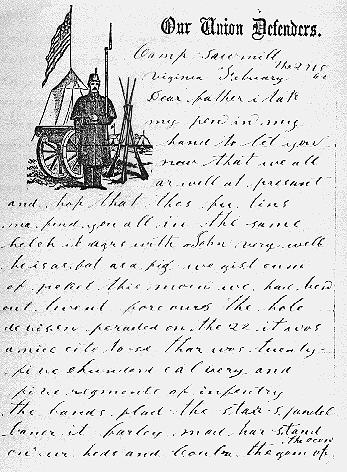 Our Union Defenders.
Camp Sawmill
Virginia February the 24
62
Dear father i take
my pen in my
hand to let you
now that we all
ar well at present
and hop that thes fu lins
ma find you all in the same
helth it agrs with John very well
he is as fat as a pig we gist cum
of picket this morn we had bend
out twent fore ours the hole
devisen peraded on the 22 it was
a nice cite to se thar was twenty-
five hundard calvery and
five regments of infentry
the bands plad the star spangel
baner it farley mad har stand
on ur heds and the